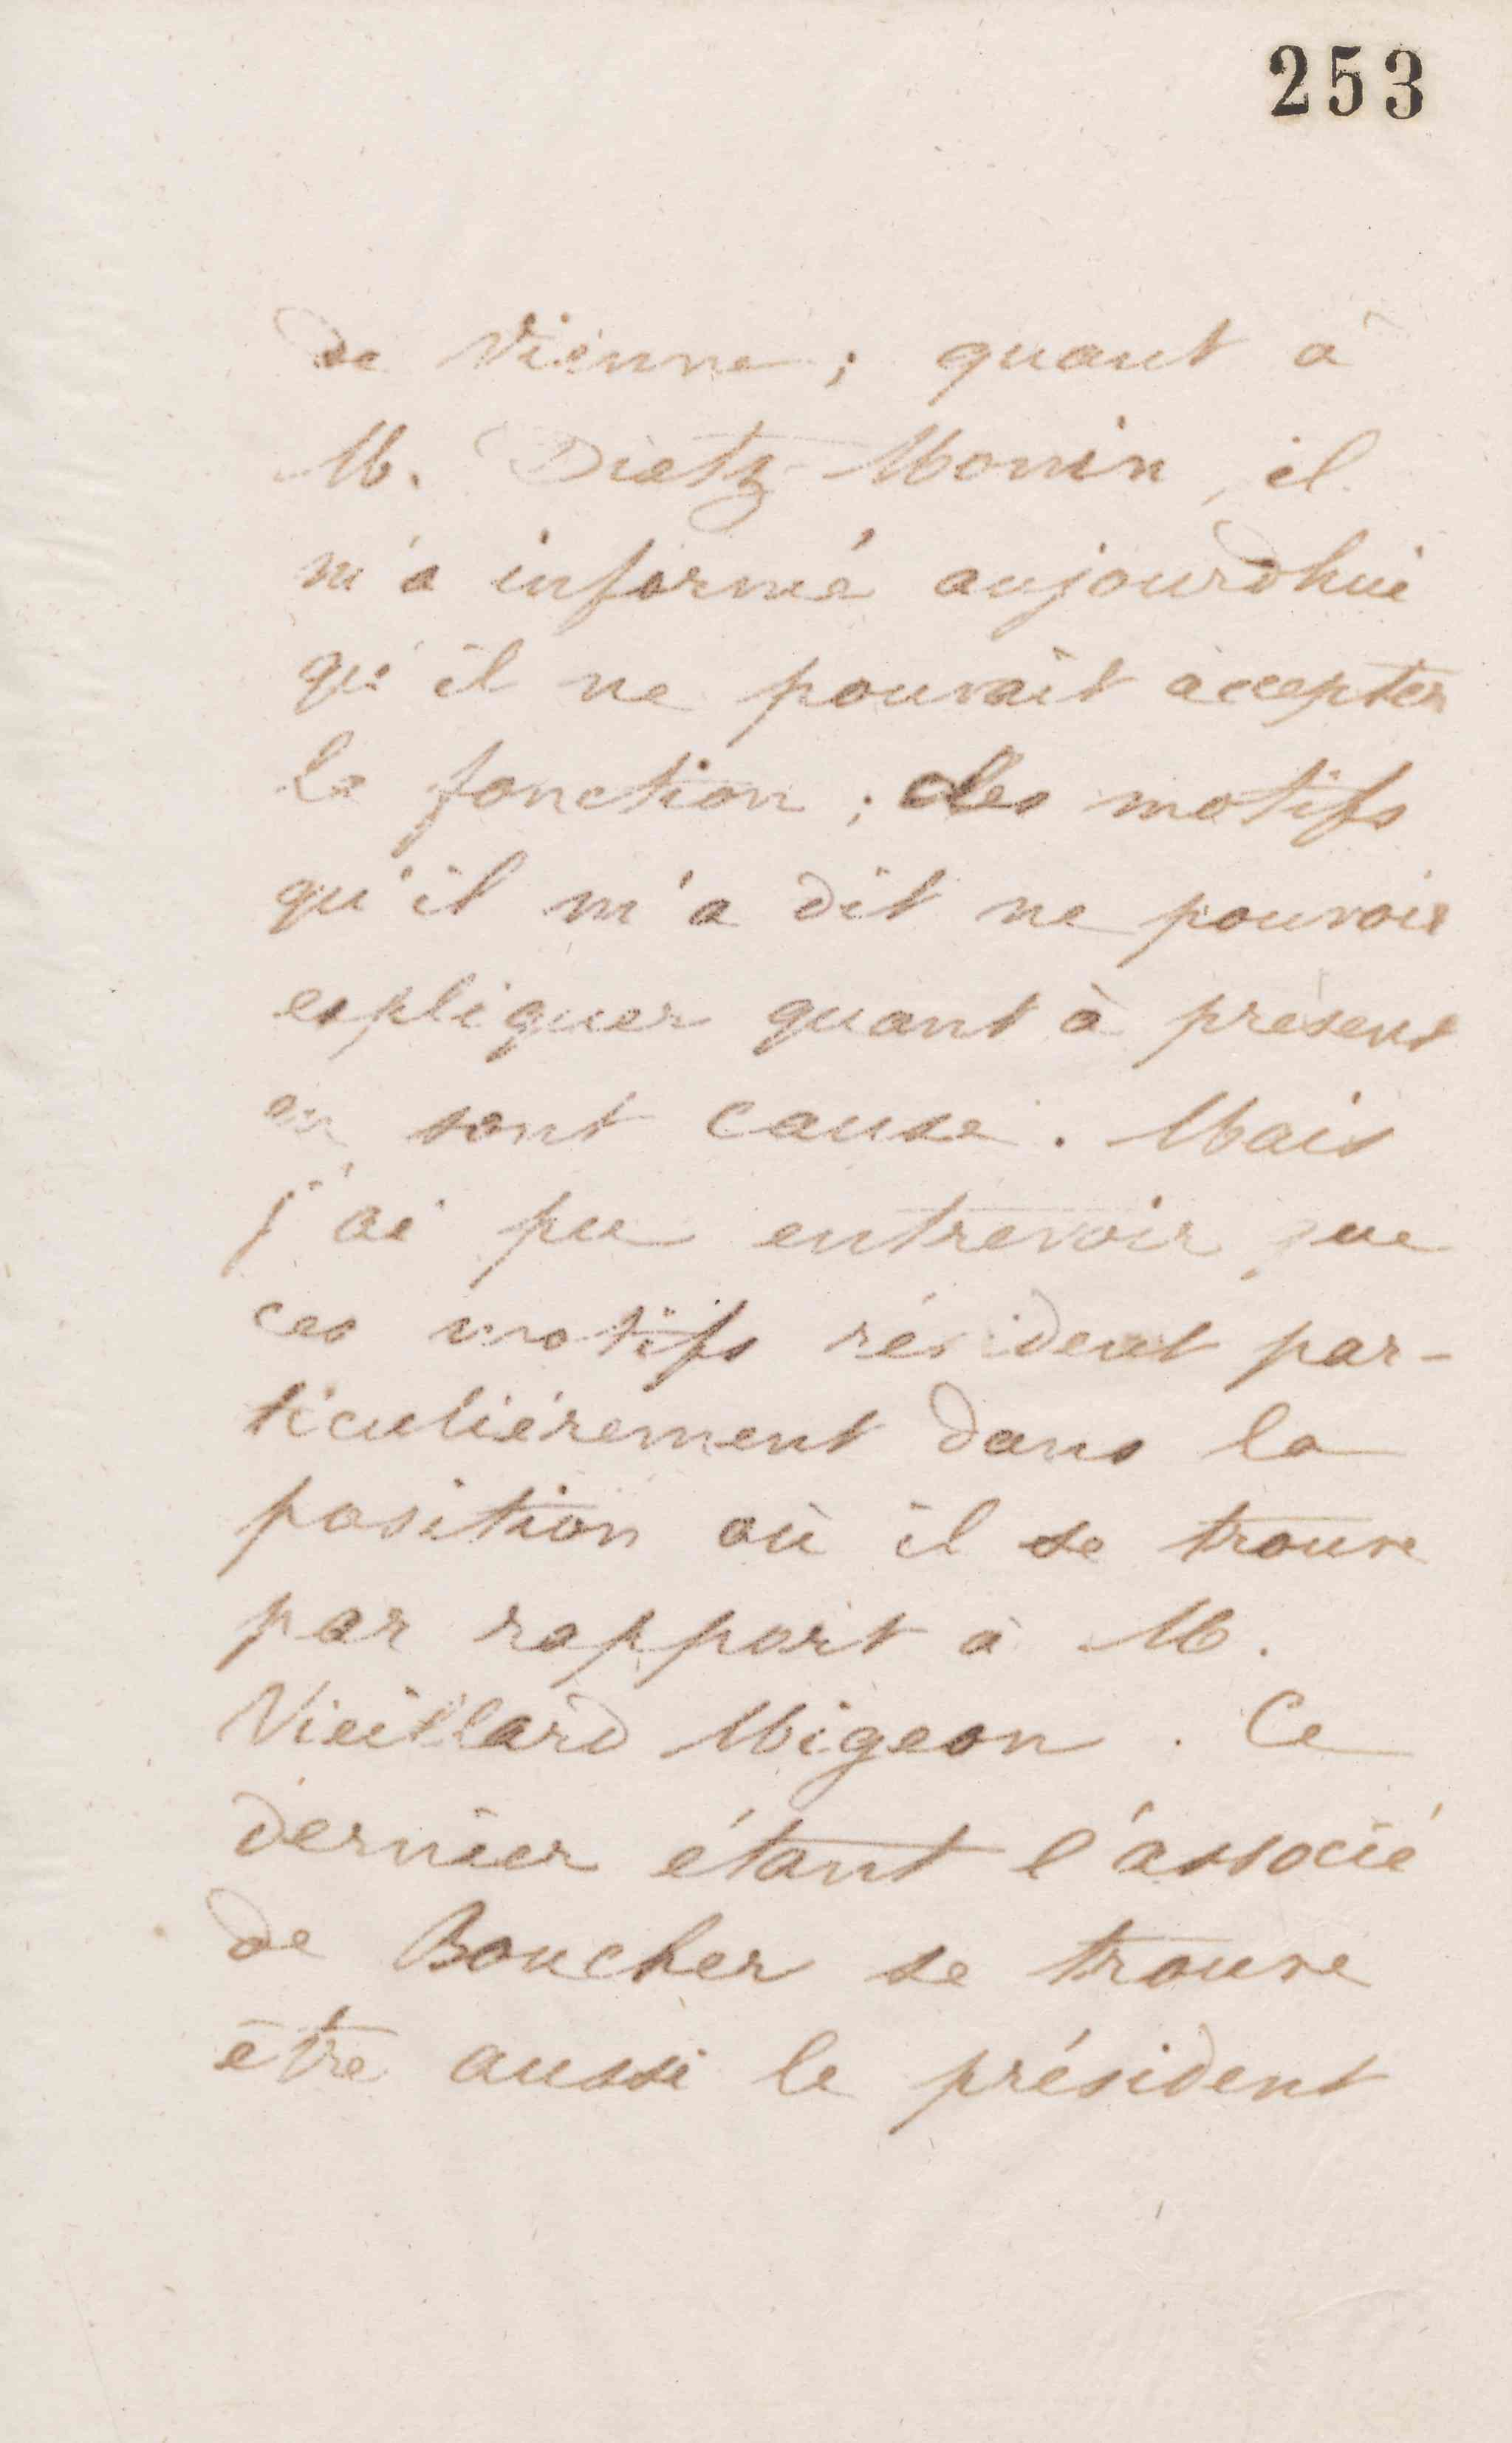 253
de Vienne ; quant à
M. Dietz-Monin, il
m'a informé aujourdhui
qu'il ne pouvait accepter
la fonction ; des motifs
qu'il m'a dit ne pouvoir
expliquer quant à présent
en sont cause. Mais
j'ai pu entrevoir que
ces motifs résident par-
ticulièrement dans la
position où il se trouve
par rapport à M.
Vieillard Migeon. Ce
dernier étant l'associé
de Boucher se trouve
être aussi le président